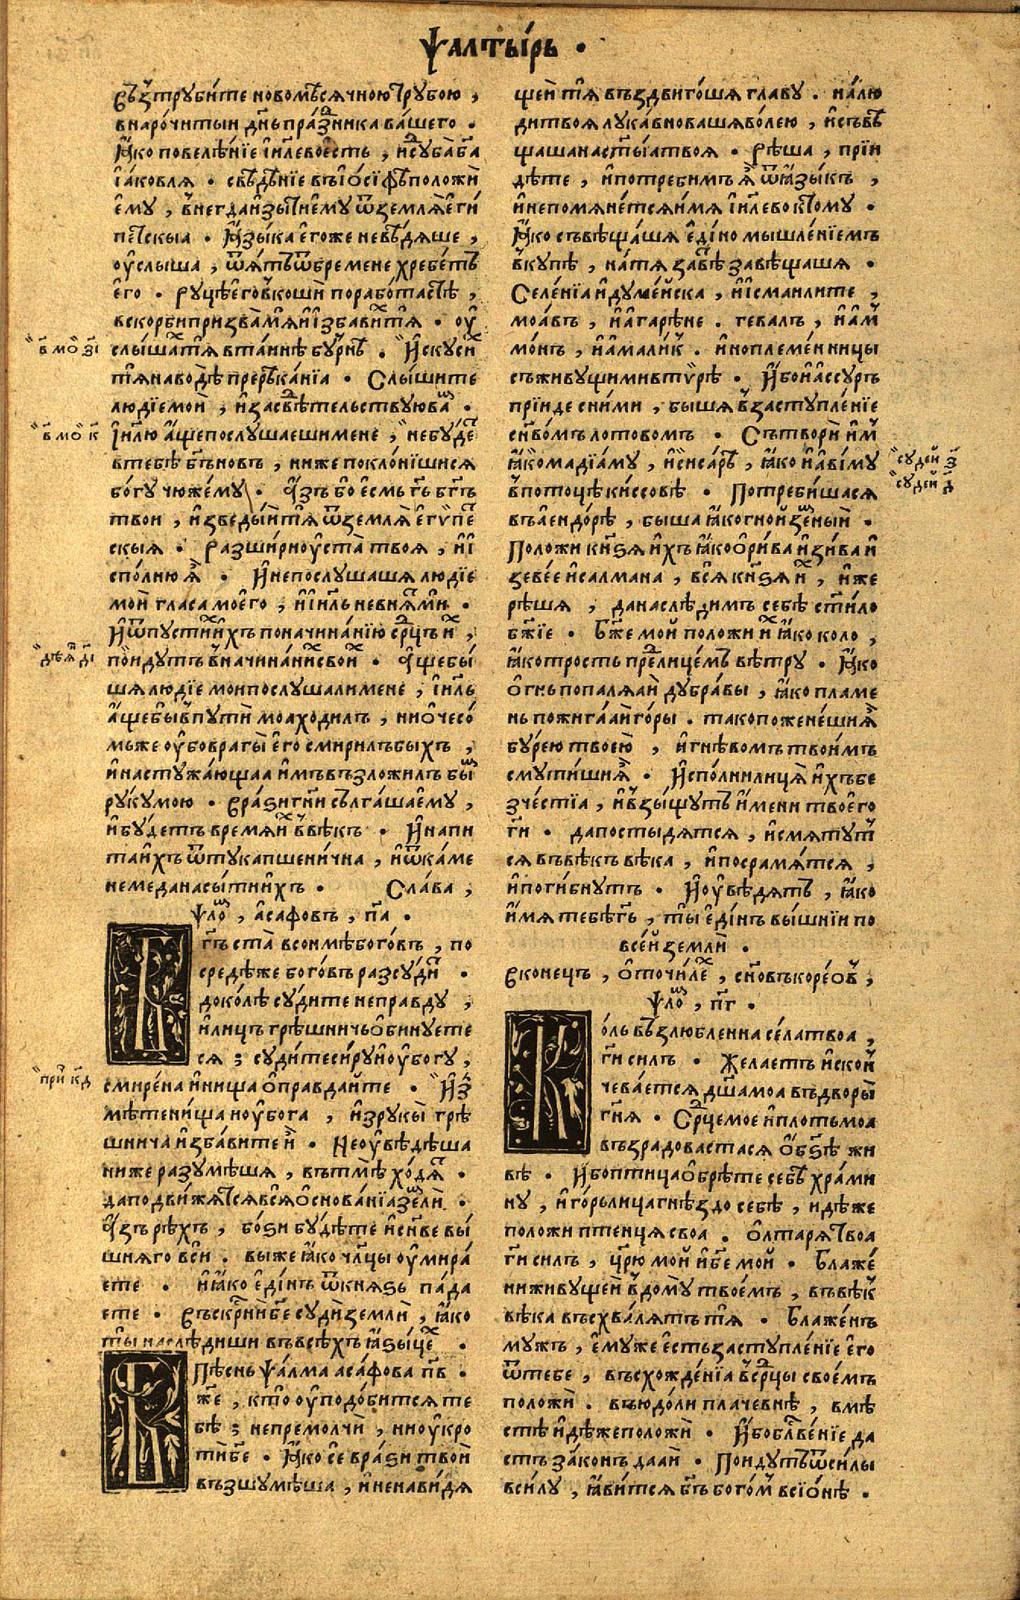 Ѱалты́рь ·
въꙁтрꙋби́те новомⷭ҇ѣсѧчною трꙋбою ,
внаро́читыи дн҃ь пра́ꙁника ва́шего ·
ꙗ҆́ко повелѣ́нїе і҆и҃лево є҆́сть , и҆ сꙋба̀ бг҃а
і҆а́ковлѧ · свѣдѣ́нїе въ іѡ҆́сифѣ положѝ
є҆мꙋ , в҆негда и҆зы́ти є҆мꙋ ѿ землѧ̀ є҆гѵ́
петскыа · ꙗ҆зы́ка є҆гоже невѣ́дѧше ,
оу҆слыша , ѿѧ́тъ ѿ бремене хребе́тъ
є҆го · рꙋцѣ є҆го в҆кошѝ порабо́тастѣ ,
вскорби призва́ мѧ и҆ и҆збави́хтѧ · оу҆
слы́шах тѧ втаинѣ бꙋ́рнѣ · И҆скꙋси́х
тѧ наводѣ̀ прерѣка́нїа · Слы́шите
лю́дїе мои̑ , и҆ засвѣ́тельствꙋю ва́м ·
і҆и҃лю а҆́ще послꙋшаеши мене , небꙋ́де
втебѣ̀ бг҃ъ новъ , ниже покло́нишисѧ
бо́гꙋ чюже́мꙋ · а҆́зъ бо є҆смь гь҃ бг҃ъ
твои , и҆зведы́и тѧ ѿ землѧ̀ є҆гѵ́пе
скыѧ · разшири оу҆ста̀ твоѧ , и҆ и҆
спо́лню ѧ҆̀ · И҆ непослꙋшашѧ лю́дїе
мои̑ гла́са мое́го , и҆ і҆и҃ль невнѧ́т ми ·
И҆ ѿпꙋсти́х и҆́хъ поначина́нїю ср҃цъ и҆́х ,
по́идꙋтъ в҆начина́нии свои́х · а҆́ще бы́
шѧ лю́дїе мои послꙋшали мене , і҆и҃ль
а҆́ще бы́ в҆пꙋти̑ моа ходилъ , ни ѡ҆ чесо́
мьже оу҆бо враги̑ є҆го смирилъ быхъ ,
и҆ настꙋжа́ющаа и҆̀мъ възложилъ бы́х
рꙋкꙋ мою · врази гн҃и сългаша є҆мꙋ ,
и҆ бꙋдетъ времѧ и҆́х в҆вѣкъ · И҆ напи
та и҆́хъ ѿ тꙋка пшени́чна , и҆ ѿ ка́ме
не меда насы́ти и҆́хъ · Сла́ва ,
Ѱало́м , а҆сафовъ , п҃а ·
Бг҃ъ ста̀ всонмѣ бого́въ , по
средѣ же бого́въ разсꙋ́дит ·
доко́лѣ сꙋ́дите неправдꙋ ,
и҆ лицъ грѣшничь ѡ҆бинꙋете
сѧ ; сꙋди́те си́рꙋ и҆ оу҆бо́гꙋ ,
смире́на и҆ нища ѡ҆правда́ите · И҆з
мѣ́те нища и҆ оу҆бога , и҆з рꙋкы̀ грѣ
шнича и҆збавите и҆̀ · Не оу҆вѣ́дѣша
ниже разꙋмѣ́шѧ , вътмѣ̀ хо́дѧт ·
да подви́жꙋтсѧ всѧ ѡ҆снова́нїа земли̑ ·
а҆́зъ рѣхъ , бо́зи бꙋ́дѣте и҆ сн҃ве вы́
шнѧго вси · вы же ꙗ҆́ко чл҃цы оу҆мира́
ете · и҆ ꙗ҆́ко є҆ди́нъ ѿ кнѧзь па́да
ете · въскр҃ни бж҃е сꙋдѝ земли̑ , ꙗ҆́ко
ты̀ наслѣдиши въвсѣ́хъ ꙗ҆зы́цех ·
Пѣснь ѱалма асафова п҃в ·
Бж҃е , кто̀ оу҆подо́битсѧ те
бѣ ; непремолчѝ , ни оу҆кро
тѝ бж҃е · ꙗ҆́ко се врази̑ твои̑
възшꙋмѣ́ша , и҆ ненави́дѧ
щеи тѧ въздвиго́шѧ главꙋ · на́лю
ди твоѧ лꙋка́вноваша во́лею , и҆ съвѣ
щаша на ст҃ы́а твоѧ · рѣша , прїи
дѣте , и҆ потребимъ ѧ҆̀ ѿ ꙗ҆зы́къ ,
и҆ непомѧне́тсѧ и҆мѧ і҆и҃лево к тому ·
ꙗ҆́ко съвѣща́шѧ є҆ди́номышле́нїемъ
в҆кꙋпѣ , на́тѧ завѣ́т завѣщашѧ ·
Селе́нїа и҆дꙋме́иска , и҆ и҆сманлите ,
моа́въ , и҆ а҆гарѣне · гевалъ , и҆ а҆м
мо́нъ , и҆ а҆мали́к · и҆ноплеме́нницы
съ живꙋ́щими втѵ́рѣ · И҆бо и҆ а҆ссꙋръ
прїиде сни́ми , бы́шѧ в҆застꙋпле́нїе
сн҃во́мъ лотовомъ · Сътворѝ и҆́м
ꙗ҆́ко мадїа́мꙋ , и҆ сиса́рѣ , ꙗ҆́ко и҆ а҆ви́мꙋ
в҆ потоцѣ киссовѣ · Потреби́шасѧ
въ а҆ендо́рѣ , бы́ша ꙗ҆́ко гно́и зе́мный ·
Положи кнѧзѧ и҆́хъ ꙗ҆́ко ѡ҆ри́ва и҆ зи́ва и҆
зеве́е и҆ салмана , всѧ кнѧзѧ и҆́х , и҆́же
рѣшѧ , да наслѣ́димъ себѣ̀ ст҃и́ло
бж҃їе · Бж҃е мои положи и҆́х ꙗ҆́ко коло ,
ꙗ҆́ко трость пред лице́мъ вѣтрꙋ · ꙗ҆́ко
ѻ҆гнь попалѧ́аи дꙋбра́вы , ꙗ҆́ко пламе
нь пожига́аи го́ры · тако пожене́ши ѧ҆̀
бꙋ́рею твоею , и҆ гнѣ́вомъ твои́мъ
смꙋти́ши ѧ҆̀ · И҆спо́лни лица̀ и҆́хъ бе
зче́стїа , и҆ взы́щꙋтъ и҆мени твоего
гн҃и · да постыдѧ́тсѧ , и҆ смѧтꙋ́т
сѧ въ вѣкъ вѣка , и҆ посрамѧ́тсѧ ,
и҆ поги́бнꙋтъ · И҆ оу҆вѣ́дѧтъ , ꙗ҆́ко
и҆́мѧ тебѣ гь҃ , ты̀ є҆ди́нъ вы́шнїи по
все́и земли̑ ·
вконець , ѡ҆ точи́лех , сн҃овъ коре́ов ,
ѱало́м , п҃г ·
Коль възлю́бленна се́ла твоа ,
гн҃и силъ · Желаетъ и҆ ско́н
чева́етсѧ дш҃а моа въдворы̀
гн҃ѧ · Ср҃це мое и҆ плоть моа
възра́довастасѧ ѡ҆ бз҃ѣ жи
вѣ · И҆бо птица ѡ҆брѣ́те себѣ̀ храми
нꙋ , и҆ го́рълица гнѣздо себѣ , идѣже
положи птенцѧ своа · ѻ҆лтарѧ̀ твоа
гн҃и силъ , цр҃ю мо́и и҆ бж҃е мой · Блаже́
ни живꙋщеи в҆до́мꙋ твое́мъ , въ вѣ́к
вѣка въсхва́лѧтъ тѧ · Блаже́нъ
мꙋжъ , є҆мꙋже є҆сть застꙋпле́нїе є҆го
ѿ тебе , въсхожде́нїа в ср҃цы своемъ
положѝ · въ ю҆до́ли плаче́внѣ , вмѣ
стѣ и҆дѣже положѝ · И҆бо блгⷭ҇ве́нїе да
стъ зако́нъ даа́и · Поидꙋтъ ѿ си́лы
в си́лꙋ , ꙗ҆ви́тсѧ бг҃ъ бого́м всїѡ́нѣ ·
в҃ мо҃ з҃і
в҃ мо҃ к҃
дѣѧ д҃і
при к҃д
сꙋде́й з҃
сꙋде́й д҃